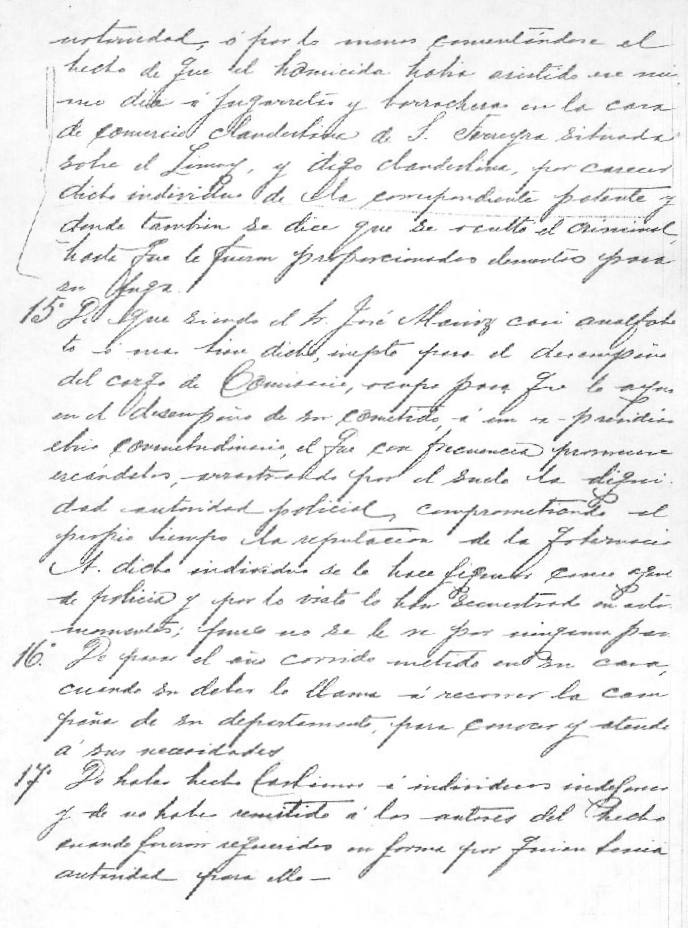 notoriedad, ó por lo menos comentándose el
hecho de que el homicida habia asistido ese mis
mo dia á jugarretas y borracheras en la casa
de comercio clandestina de S. Ferreyra situada
sobre el Limay, y digo clandestina, por carecer
dicho individuo de la correspondiente patente y
donde tambien se dice que se oculto el criminal,
hasta que le fueron proporcionados elementos para
su fuga.
15º De que siendo el Sr. José casi analfabe
to ó mas bien dicho, inepto para el desempeño
del cargo de Comisario, ocupe para que le ayude
en el desempeño de su cometido, á un ex-presidiario
ebrio consuetudinario, el que con frecuencia promueve
escándalos, arrastrando por el suelo la digni
dad autoridad policial, comprometiendo al
propio tiempo la reputacion de la Gobernacion
A dicho individuo se le hace figurar como agente
de policia y por lo visto lo han secuestrado en estos
momentos; pues no se le ve por ninguna parte
16º De pasar el año corrido metido en su casa,
cuando su deber lo llama á recorrer la cam
paña de su departamento, para conocer y atender
á sus necesidades
17º De haber hecho á individuos indefensos
y de no haber remitido á los autores del hecho
cuando fueron requeridos en forma por quien tenia
autoridad para ello —